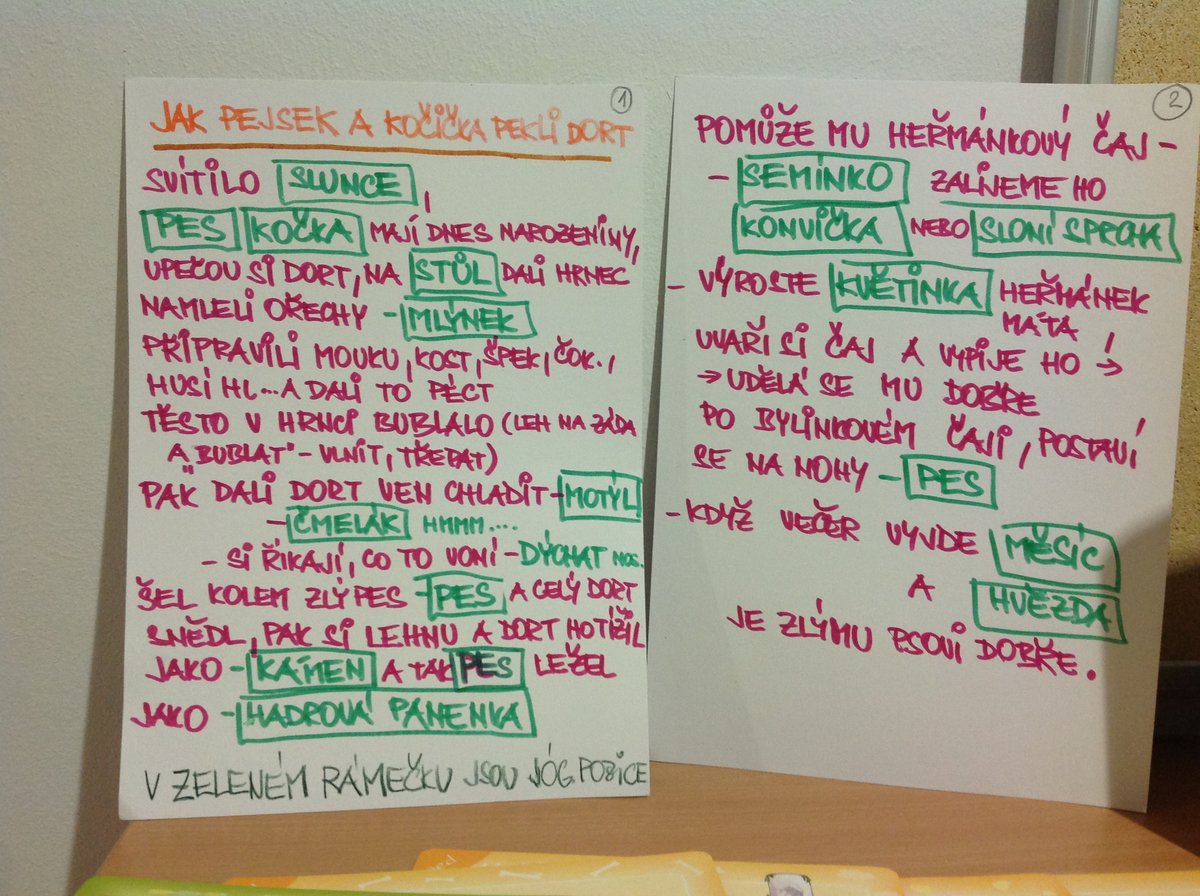 1
JAK PEJSEK A KOČIČKA PEKLI DORT
SVÍTILO SLUNCE,
PES KOČKA MAJÍ DNES NAROZENINY,
UPEČOU SI DORT, NA STŮL DALI HRNEC
NAMLELI OŘECHY - MLÝNEK
PŘIPRAVILI MOUKU, KOST, ŠPEK, ČOK.,
HUSÍ HL... A DALI TO PÉCT
TĚSTO V HRNCI BUBLALO (LEH NA ZÁDA
A „BUBLAT" - VLNIT, TŘEPAT)
PAK DALI DORT VEN CHLADIT - MOTÝL
- ČMELÁK HMMM....
- SI ŘÍKAJÍ, CO TO VONÍ - DÝCHAT NOS.
ŠEL KOLEM ZLÝ PES - PES A CELÝ DORT
SNĚDL, PAK SI LEHNU A DORT HO TÍŽIL
JAKO - KÁMEN A TAK PES LEŽEL
JAKO - HADROVÁ PANENKA
V ZELENÉM RÁMEČKU JSOU JÓG. POZICE
2
POMŮŽE MU HEŘMÁNKOVÝ ČAJ -
- SEMÍNKO ZALIJEME HO
KONVIČKA NEBO SLONÍ SPRCHA
- VYROSTE KVĚTINKA HEŘMÁNEK
MÁTA
UVAŘÍ SI ČAJ A VYPIJE HO! →
→ UDĚLÁ SE MU DOBŘE
PO BYLINKOVÉM ČAJI, POSTAVÍ
SE NA NOHY - PES
- KDYŽ VEČER VYJDE MĚSÍC
A HVĚZDA
JE ZLÝMU PSOVI DOBŘE.